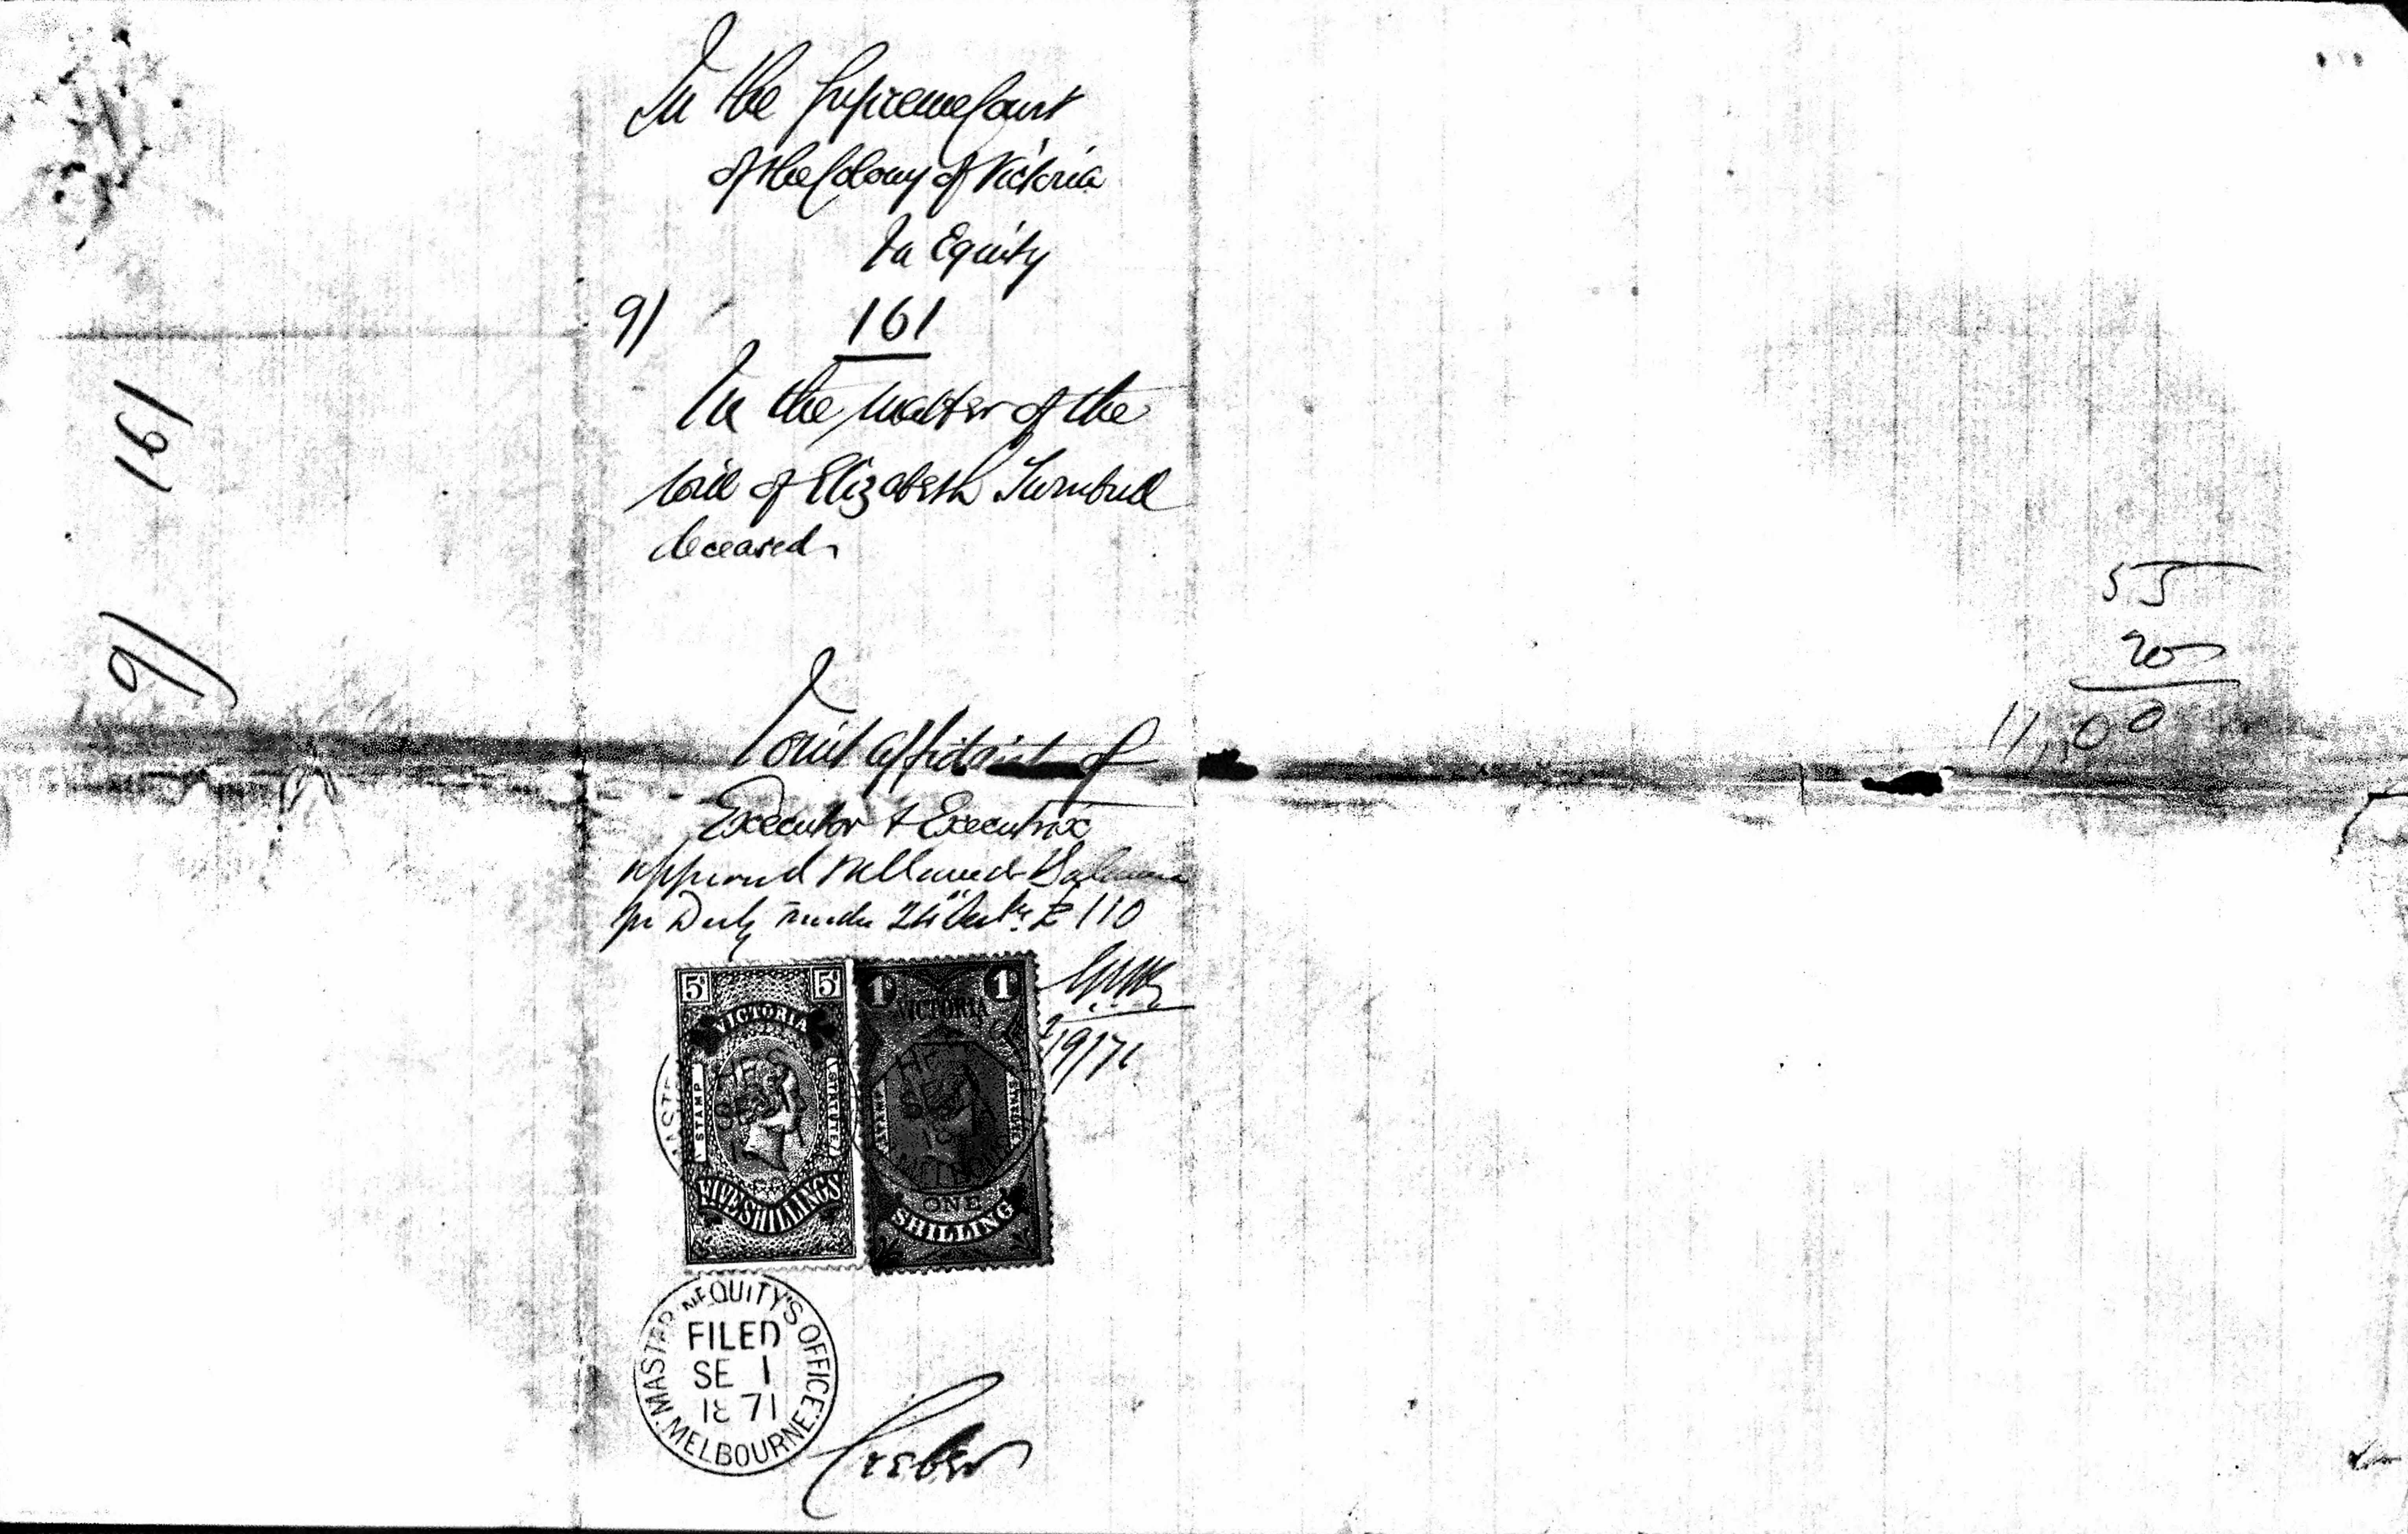 In the Supreme Court
of the Colony of Victoria
In Equity
9/ 161
In the matter of the
will of Elizabeth Turnbull
deceased
Joint affidavit of
Executor & Executrix
approved & allowed Balance
for Duty under 24 £110
1/9/71
5s 5s
VICTORIA
STAMP STATUTE
FIVE SHILLINGS
1s 1s
VICTORIA
STAMP STATUTE
ONE
SHILLING
MASTER IN EQUITY'S OFFICE
FILED
SE 1
1871
MELBOURNE
Creber
161
9/
55
20
11,00